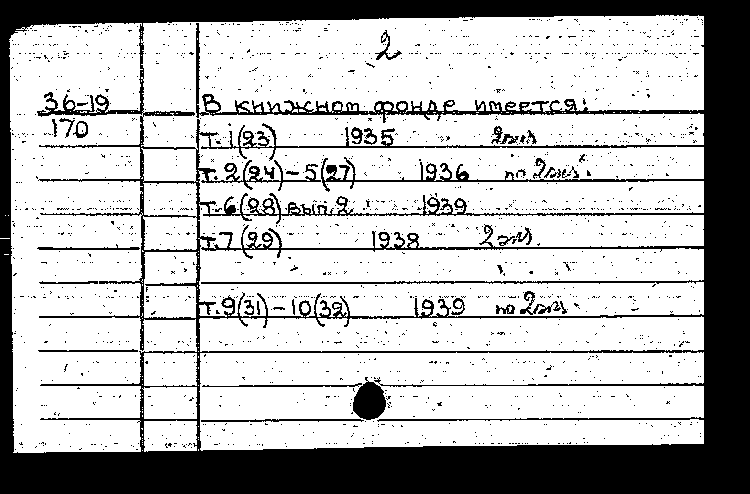 2
36-19 В книжном фонде имеется:
170 т. 1(23) 1935 2экз
т. 2(24) - 5(27) 1936 по 2экз.
т. 6(28) вып. 2. 1939
т. 7(29) 1938 2 экз.
т. 9(31) - 10(32) 1939 по 2экз.